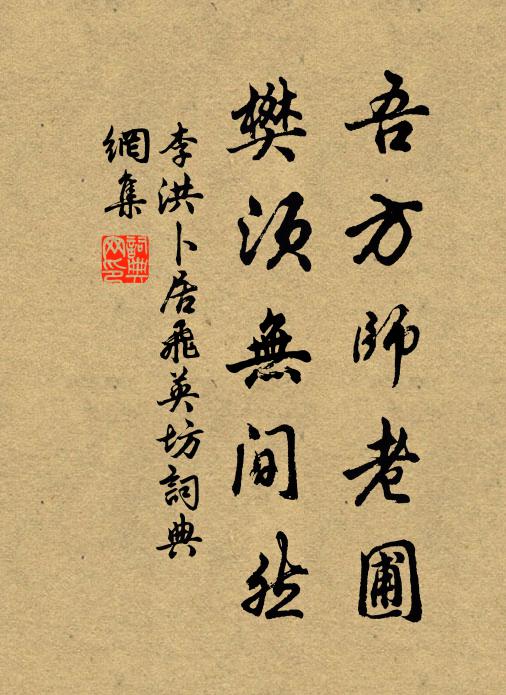 吾方師老圃
樊須無間然
李洪卜居飛英坊詞典
網集
詞典网印